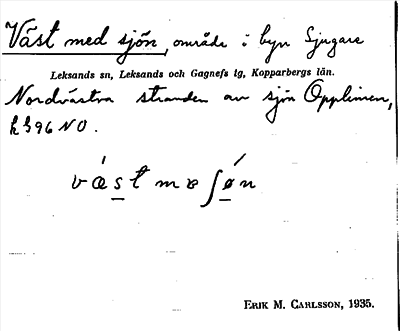 Väst med sjön, område i byn Sjugare
Leksands sn, Leksands och Gagnefs tg, Kopparbergs län.
Nordvästra stranden av sjön Opplimen,
k 396 NO.
væst mɐ ʃøn
ERIK M. CARLSSON, 1935.